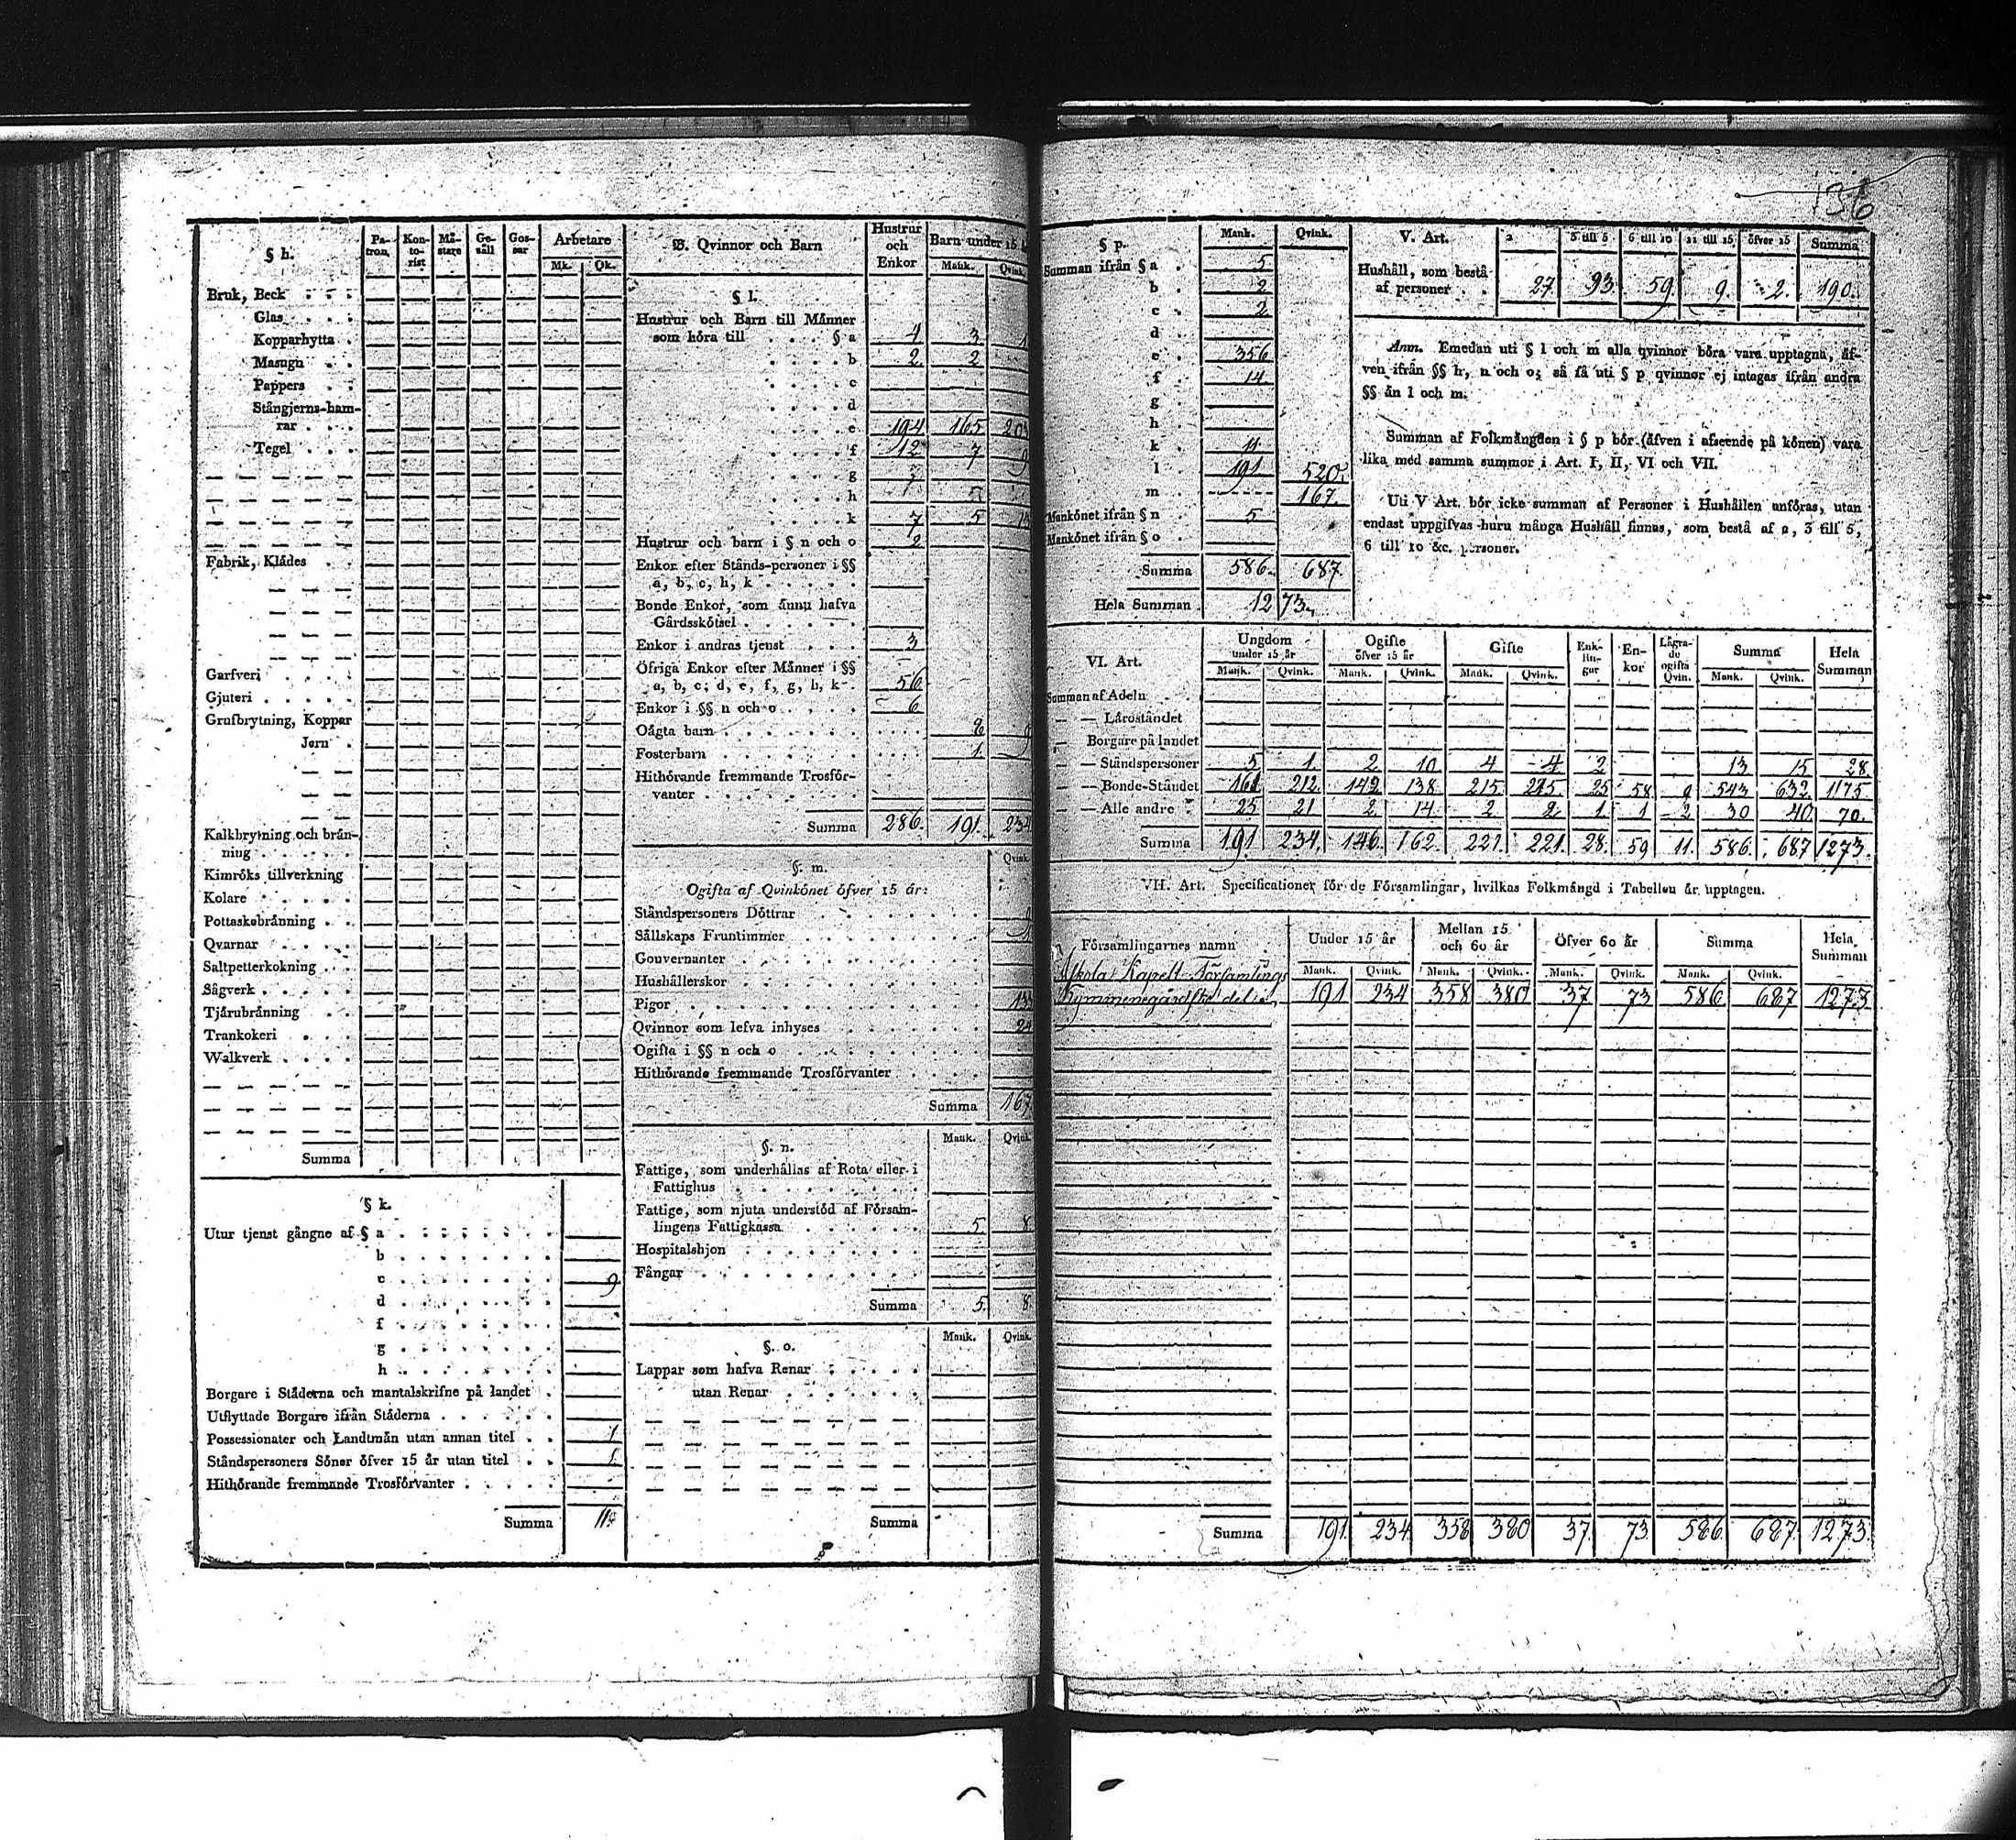 136
§ h. Pa-tron. Kon-to-rist Må-stare Ge-säll Gos-sar Arbetare
Mk. Qk.
Bruk, Beck
Glas
Kopparhytta
Masugn
Pappers
Stångjerns-ham-
rar
Tegel
Fabrik, Klådes
Garfveri
Gjuteri
Grufbrytning, Koppar
Jern
Kalkbrytning och brän-
ning
Kimröks tillverkning
Kolare
Pottaskebränning
Qvarnar
Saltpetterkokning
Sågverk
Tjärubränning
Trankokeri
Walkverk
Summa
§ k.
Utur tjenst gångne af § a
b
c 9
d
f
g
h
Borgare i Städerna och mantalskrifne på landet
Utflyttade Borgare ifrån Städerna
Possessionater och Landtmän utan annan titel 1
Ståndspersoners Söner öfver 15 år utan titel 1
Hithörande fremmande Trosförvanter
Summa 11
B. Qvinnor och Barn Hustrur och Enkor Barn under 15
Mank. Qvink.
§ l.
Hustrur och Barn till Männer
som höra till § a 4 3 1
b 2 2
c
d
e 194 165 203
f 12 7 9
g
h
k 7 5
Hustrur och barn i § n och o 2
Enkor efter Stånds-personer i §§
a, b, c, h, k
Bonde Enkor, som ännu hafva
Gårdsskötsel
Enkor i andras tjenst 3
Öfriga Enkor efter Männer i §§
a, b, c, d, e, f, g, h, k 56
Enkor i §§ n och o 6
Oägta barn 8
Fosterbarn 1
Hithörande fremmande Trosför-
vanter
Summa 286. 191. 234
§. m. Qvink.
Ogifta af Qvinkönet öfver 15 år:
Ståndspersoners Döttrar
Sällskaps Fruntimmer
Gouvernanter
Hushållerskor
Pigor
Qvinnor som lefva inhyses
Ogifta i §§ n och o
Hithörande fremmande Trosförvanter
Summa 167
§. n. Mank. Qvink.
Fattige, som underhållas af Rota eller i
Fattighus
Fattige, som njuta understöd af Försam-
lingens Fattigkassa 5 8
Hospitalshjon
Fångar
Summa 5. 8.
§. o. Mank. Qvink.
Lappar som hafva Renar
utan Renar
Summa
§ p. Mank. Qvink.
Summan ifrån § a 5
b 2
c 2
d
e 356
f 14
g
h
k 11
l 191 520
m 167.
Mankönet ifrån § n 5
Mankönet ifrån § o
Summa 586. 687.
Hela Summan 1273.
V. Art. 2 3 till 5 6 till 10 11 till 15 öfver 15 Summa
Hushåll, som bestå
af personer 27 93 59 9. 2. 190.
Anm. Emedan uti § l och m alla qvinnor böra vara upptagna, äf-
ven ifrån §§ h, n och o; så få uti § p qvinnor ej intagas ifrån andra
§§ än l och m.
Summan af Folkmängden i § p bör (äfven i afseende på könen) vara
lika med samma summor i Art. I, II, VI och VII.
Uti V Art. bör icke summan af Personer i Hushållen anföras, utan
endast uppgifvas huru många Hushåll finnas, som bestå af 2, 3 till 5,
6 till 10 &c. personer.
VI. Art. Ungdom under 15 år Ogifte öfver 15 år Gifte Enk-lin-gar En-kor Lägra-de ogifta Qvin. Summa Hela Summan
Mank. Qvink. Mank. Qvink. Mank. Qvink. Mank. Qvink.
Summan af Adeln
— — Läroståndet
— Borgare på landet
— — Ståndspersoner 5 1. 2 10 4 4 2 13 15 28.
— — Bonde-Ståndet 161 212. 142 138 215 215 25 58 9 543 632 1175
— — Alle andre 25 21 2 14 2 2 1 1 2 30 40 70.
Summa 191 234. 146. 162. 221. 221. 28. 59 11. 586. 687 1273.
VII. Art. Specificationer för de Församlingar, hvilkas Folkmängd i Tabellen är upptagen.
Församlingarnes namn Under 15 år Mellan 15 och 60 år Öfver 60 år Summa Hela Summan
Mank. Qvink. Mank. Qvink. Mank. Qvink. Mank. Qvink.
Kapell Församlings
Kymmenegårdske delen 191 234 358 380 37 73 586 687 1273
Summa 191. 234 358 380 37. 73. 586. 687. 1273.